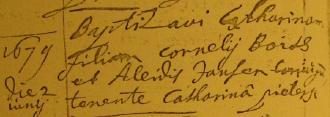 Baptizavi Catharinam
1679 filiam Cornelij
die 2 et Aleidis Jansen Coniugu
iunij tenente Catharina pieters